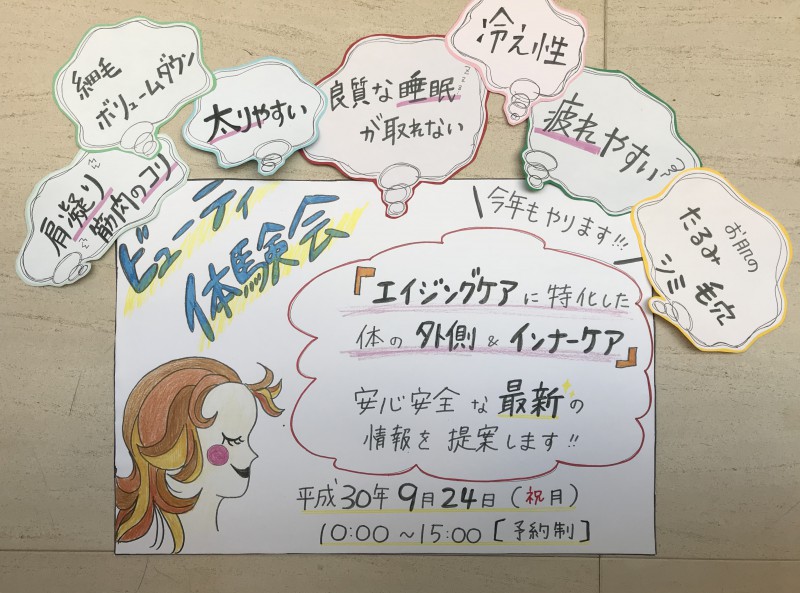 細毛
ボリュームダウン
太りやすい
良質な睡眠
が取れない
冷え性
疲れやすい
肩凝り
筋肉のコリ
お肌の
たるみ
シミ 毛穴
ビューティ
体験会
今年もやります!!!
『エイジングケアに特化した
体の外側 & インナーケア』
安心安全な最新の
情報を提案します!!
平成30年9月24日(祝月)
10:00~15:00[予約制]